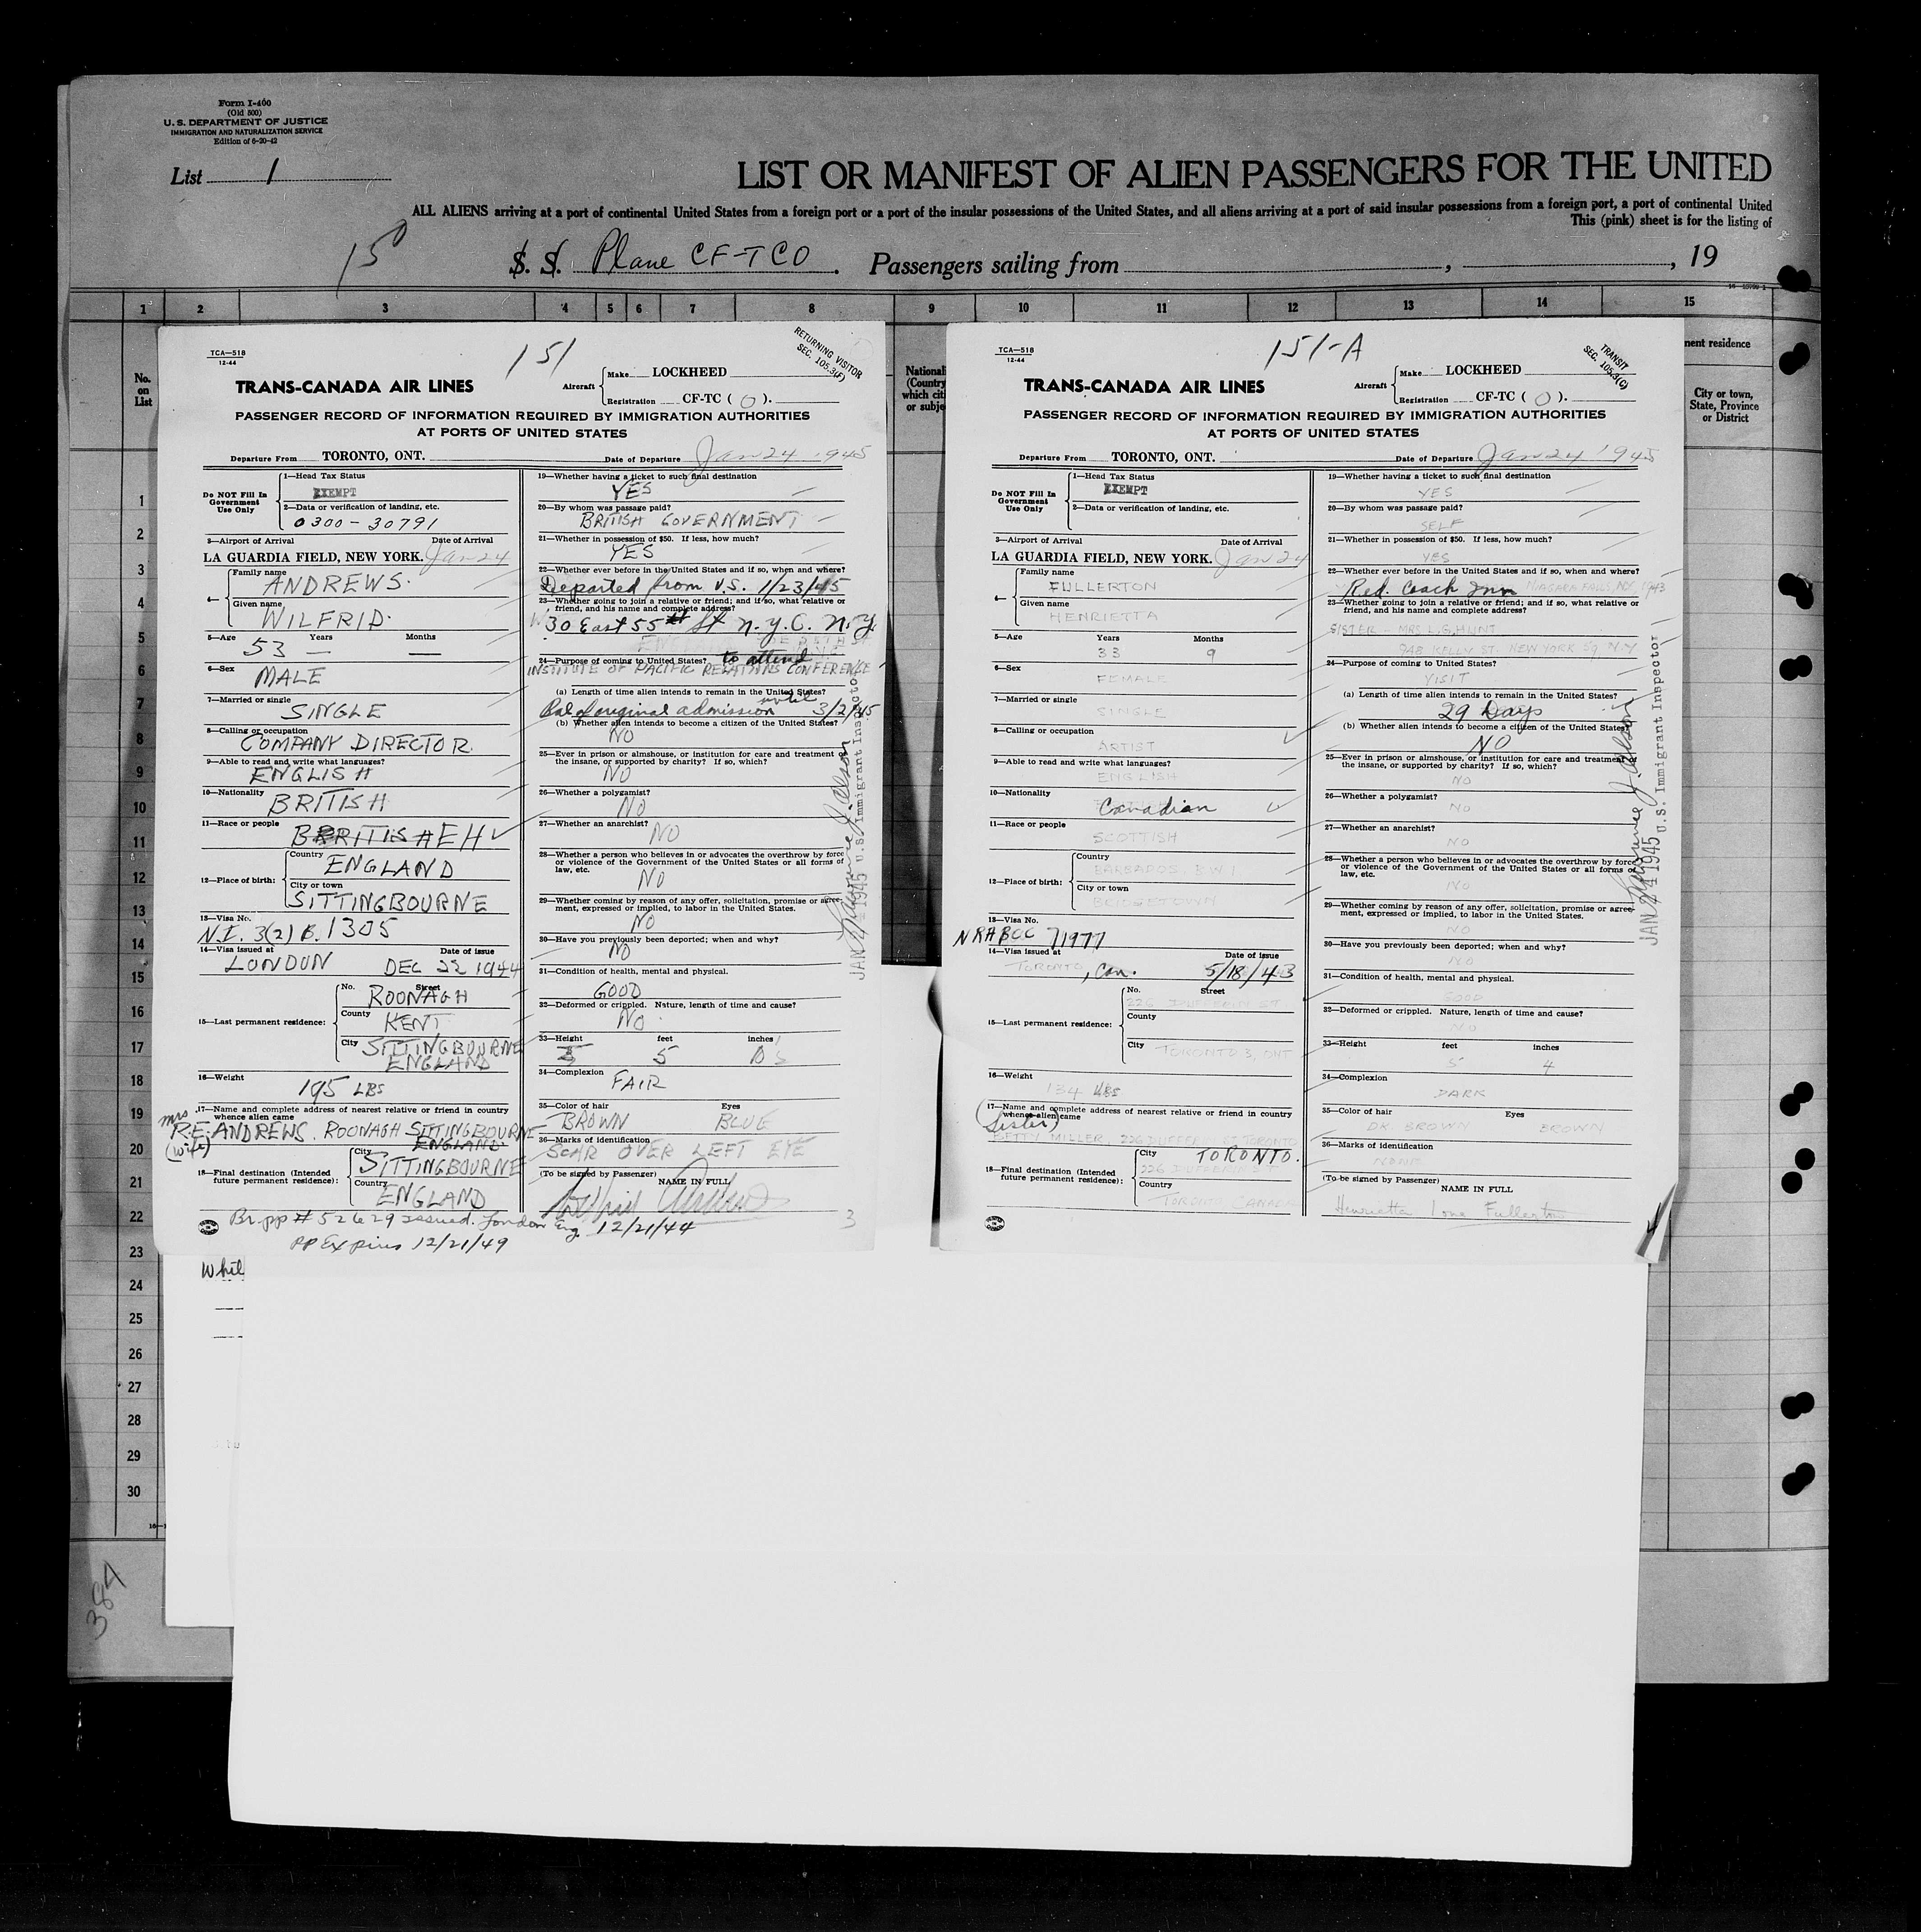 Form I-400
(Old 500)
U. S. DEPARTMENT OF JUSTICE
IMMIGRATION AND NATURALIZATION SERVICE
Edition of 6-20-42
List 1
LIST OR MANIFEST OF ALIEN PASSENGERS FOR THE UNITED
ALL ALIENS arriving at a port of continental United States from a foreign port or a port of the insular possessions of the United States, and all aliens arriving at a port of said insular possessions from a foreign port, a port of continental United
This (pink) sheet is for the listing of
150
S. S. Plane CF-TCO. Passengers sailing from , , 19
1 2 3 4 5 6 7 8 9 10 11 12 13 14 15
No.
on
List
National
(Country
which cit
or subje
nent residence
City or town,
State, Province
or District
1
2
3
4
5
6
7
8
9
10
11
12
13
14
15
16
17
18
19
20
21
22
23
24
25
26
27
28
29
30
TCA—518
12-44
151
RETURNING VISITOR
SEC. 105.3(F)
TRANS-CANADA AIR LINES
Aircraft
Make LOCKHEED
Registration CF-TC ( O ).
PASSENGER RECORD OF INFORMATION REQUIRED BY IMMIGRATION AUTHORITIES
AT PORTS OF UNITED STATES
Departure From TORONTO, ONT. Date of Departure Jan 24 1945
Do NOT Fill In
Government
Use Only
1—Head Tax Status
EXEMPT
2—Data or verification of landing, etc.
0300-30791
3—Airport of Arrival Date of Arrival
LA GUARDIA FIELD, NEW YORK. Jan 24
4—
Family name
ANDREWS.
Given name
WILFRID.
5—Age Years Months
53 — —
6—Sex
MALE
7—Married or single
SINGLE
8—Calling or occupation
COMPANY DIRECTOR.
9—Able to read and write what languages?
ENGLISH
10—Nationality
BRITISH
11—Race or people
BRITISH EH
12—Place of birth:
Country
ENGLAND
City or town
SITTINGBOURNE
13—Visa No.
N.I. 3(2) B. 1305
14—Visa issued at Date of issue
LONDON DEC 22 1944
15—Last permanent residence:
No. Street
ROONAGH
County
KENT
City SITTINGBOURNE
ENGLAND
16—Weight
195 LBS
17—Name and complete address of nearest relative or friend in country
whence alien came
mrs
R.E. ANDREWS. ROONAGH SITTINGBOURNE
ENGLAND
(wife)
18—Final destination (Intended
future permanent residence):
City
SITTINGBOURNE
Country
ENGLAND
Br. pp # 52629 issued. London Eng 12/21/44
PP Expires 12/21/49
19—Whether having a ticket to such final destination
YES
20—By whom was passage paid?
BRITISH GOVERNMENT
21—Whether in possession of $50. If less, how much?
YES
22—Whether ever before in the United States and if so, when and where?
Departed from U.S. 1/23/45
23—Whether going to join a relative or friend; and if so, what relative or
friend, and his name and complete address?
30 East 55th St N.Y.C. N.Y.
24—Purpose of coming to United States? to attend
INSTITUTE OF PACIFIC RELATIONS CONFERENCE
(a) Length of time alien intends to remain in the United States?
Bal of original admission until 3/2/45
(b) Whether alien intends to become a citizen of the United States?
NO
25—Ever in prison or almshouse, or institution for care and treatment of
the insane, or supported by charity? If so, which?
NO
26—Whether a polygamist?
NO
27—Whether an anarchist?
NO
28—Whether a person who believes in or advocates the overthrow by force
or violence of the Government of the United States or all forms of
law, etc.
NO
29—Whether coming by reason of any offer, solicitation, promise or agree-
ment, expressed or implied, to labor in the United States.
NO
30—Have you previously been deported; when and why?
NO
31—Condition of health, mental and physical.
GOOD
32—Deformed or crippled. Nature, length of time and cause?
NO
33—Height feet inches
5
34—Complexion
FAIR
35—Color of hair Eyes
BROWN BLUE
36—Marks of identification
SCAR OVER LEFT EYE
(To be signed by Passenger)
NAME IN FULL
Wilfrid Andrews
3
JAN 24 1945 U.S. Immigrant Inspector
TCA—518
12-44
151-A
TRANSIT
SEC. 105.3(C)
TRANS-CANADA AIR LINES
Aircraft
Make LOCKHEED
Registration CF-TC ( O ).
PASSENGER RECORD OF INFORMATION REQUIRED BY IMMIGRATION AUTHORITIES
AT PORTS OF UNITED STATES
Departure From TORONTO, ONT. Date of Departure Jan 24 1945
Do NOT Fill In
Government
Use Only
1—Head Tax Status
EXEMPT
2—Data or verification of landing, etc.
3—Airport of Arrival Date of Arrival
LA GUARDIA FIELD, NEW YORK. Jan 24
4—
Family name
FULLERTON
Given name
HENRIETTA
5—Age Years Months
33 9
6—Sex
FEMALE
7—Married or single
SINGLE
8—Calling or occupation
ARTIST
9—Able to read and write what languages?
ENGLISH
10—Nationality
Canadian
11—Race or people
SCOTTISH
12—Place of birth:
Country
BARBADOS, B.W.I.
City or town
BRIDGETOWN
13—Visa No.
NRABCC 71977
14—Visa issued at Date of issue
TORONTO, Can. 5/18/43
15—Last permanent residence:
No. Street
226 DUFFERIN ST
County
City TORONTO 3, ONT
16—Weight
134 LBS
17—Name and complete address of nearest relative or friend in country
whence alien came
(Sister)
BETTY MILLER, 226 DUFFERIN ST TORONTO
18—Final destination (Intended
future permanent residence):
City TORONTO.
226 DUFFERIN ST
Country
TORONTO CANADA
19—Whether having a ticket to such final destination
YES
20—By whom was passage paid?
SELF
21—Whether in possession of $50. If less, how much?
YES
22—Whether ever before in the United States and if so, when and where?
Red. Coach Inn NIAGARA FALLS, 1943
23—Whether going to join a relative or friend; and if so, what relative or
friend, and his name and complete address?
SISTER - MRS L.G. HUNT
948 KELLY ST. NEW YORK 59, N.Y
24—Purpose of coming to United States?
VISIT
(a) Length of time alien intends to remain in the United States?
29 Days
(b) Whether alien intends to become a citizen of the United States?
NO
25—Ever in prison or almshouse, or institution for care and treatment of
the insane, or supported by charity? If so, which?
NO
26—Whether a polygamist?
NO
27—Whether an anarchist?
NO
28—Whether a person who believes in or advocates the overthrow by force
or violence of the Government of the United States or all forms of
law, etc.
NO
29—Whether coming by reason of any offer, solicitation, promise or agree-
ment, expressed or implied, to labor in the United States.
NO
30—Have you previously been deported; when and why?
NO
31—Condition of health, mental and physical.
GOOD
32—Deformed or crippled. Nature, length of time and cause?
NO
33—Height feet inches
5 4
34—Complexion
DARK
35—Color of hair Eyes
DK. BROWN BROWN
36—Marks of identification
NONE
(To be signed by Passenger)
NAME IN FULL
Henrietta Iona Fullerton
4
JAN 24 1945 U.S. Immigrant Inspector
Whil
384